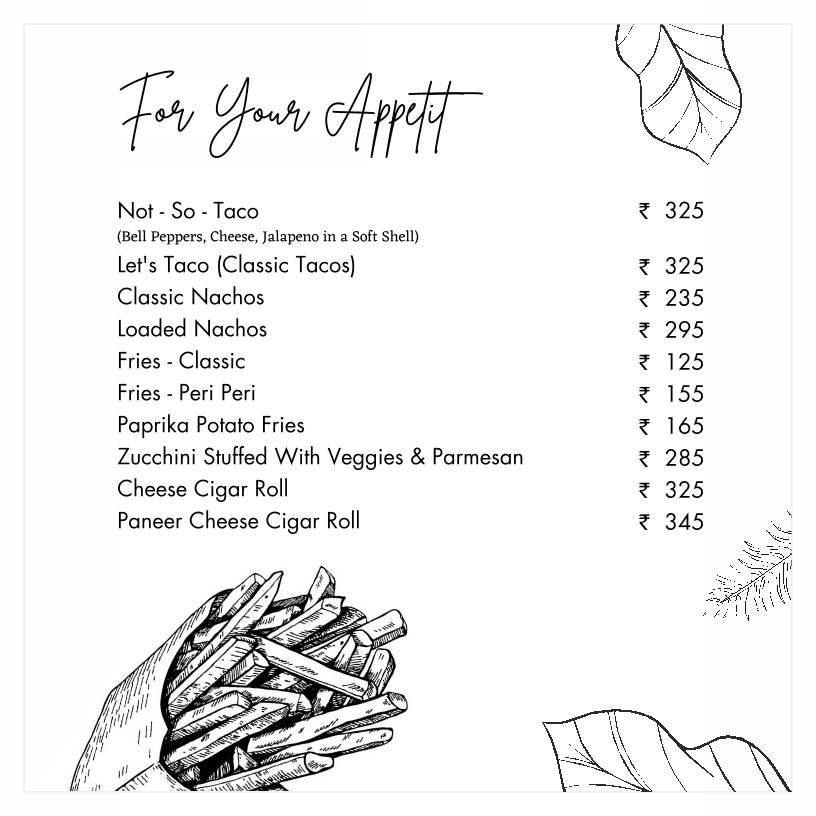 For Your Appetit
Not - So - Taco ₹ 325
(Bell Peppers, Cheese, Jalapeno in a Soft Shell)
Let's Taco (Classic Tacos) ₹ 325
Classic Nachos ₹ 235
Loaded Nachos ₹ 295
Fries - Classic ₹ 125
Fries - Peri Peri ₹ 155
Paprika Potato Fries ₹ 165
Zucchini Stuffed With Veggies & Parmesan ₹ 285
Cheese Cigar Roll ₹ 325
Paneer Cheese Cigar Roll ₹ 345